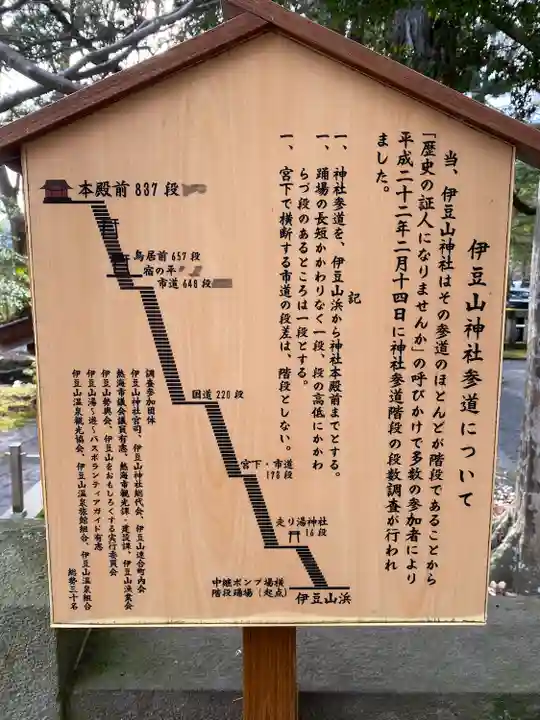 伊豆山神社参道について
当、伊豆山神社はその参道のほとんどが階段であることから
「歴史の証人になりませんか」の呼びかけで多数の参加者により
平成二十二年二月十四日に神社参道階段の段数調査が行われ
ました。
記
一、神社参道を、伊豆山浜から神社本殿前までとする。
一、踊場の長短かかわりなく一段、段の高低にかかわ
らづ段のあるところは一段とする。
一、宮下で横断する市道の段差は、階段としない。
本殿前837段
鳥居前657段
宿の平
市道648段
国道220段
宮下・市道
178段
走り湯神社
16段
中継ポンプ場横
階段踊場（起点）
伊豆山浜
調査参加団体
伊豆山神社宮司、伊豆山神社総代会、伊豆山連合町内会
熱海市議会議員有志、熱海市観光課・建設課、伊豆山漁業会
伊豆山勢興会、伊豆山をおもしろくする実行委員会
伊豆山湯～遊～バスボランティアガイド有志
伊豆山温泉観光協会、伊豆山温泉旅館組合、伊豆山温泉組合
総勢三十名